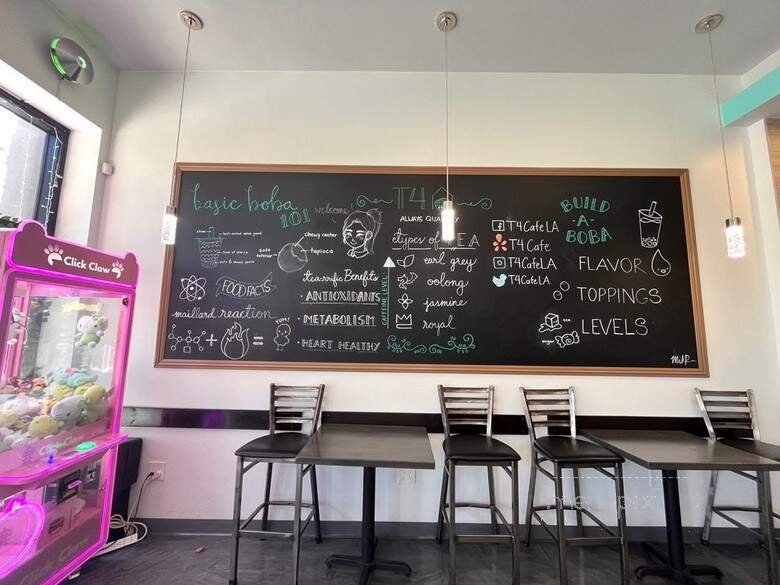 basic boba
101
welcome
T4
ALWAYS
types of TEA
chewy center
tapioca
tea-rrific Benefits
• ANTIOXIDANTS
• METABOLISM
• HEART HEALTHY
CAFFEINE LEVEL
earl grey
oolong
jasmine
royal
FOOD FACTS
maillard reaction
+
=
YUM!
T4CafeLA
T4 Cafe
T4CafeLA
T4CafeLA
BUILD
-A-
BOBA
FLAVOR
TOPPINGS
LEVELS
ice
sugar
Click Claw
Click Claw